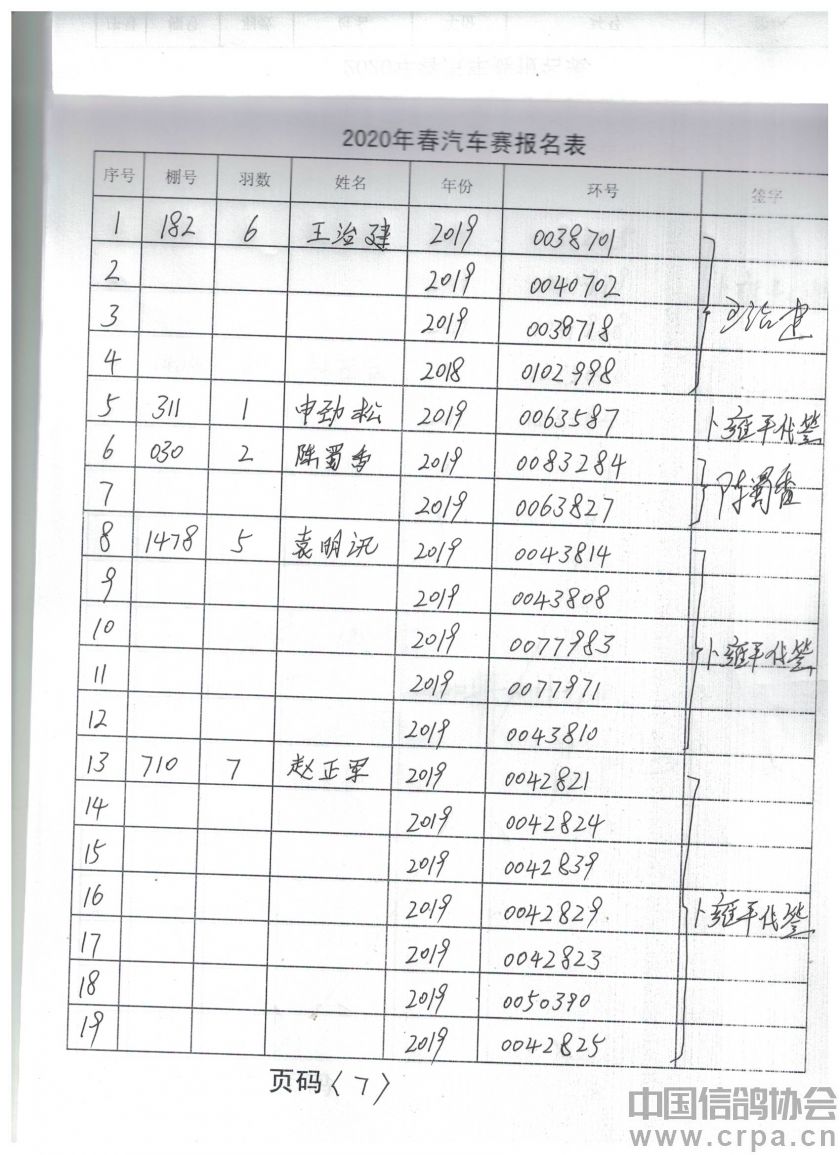 2020年春汽车赛报名表
序号 棚号 羽数 姓名 年份 环号 签字
1 182 6 王治建 2019 0038701
2 2019 0040702
3 2019 0038718 王治建
4 2018 0102998
5 311 1 申劲松 2019 0063587 卜雍平代签
6 030 2 陈蜀香 2019 0083284 陈蜀香
7 2019 0063827
8 1478 5 袁明 2019 0043814
9 2019 0043808
10 2019 0077983 卜雍平代签
11 2019 0077971
12 2019 0043810
13 710 7 赵正军 2019 0042821
14 2019 0042824
15 2019 0042839
16 2019 0042829 卜雍平代签
17 2019 0042823
18 2019 0050390
19 2019 0042825
页码〈7〉
中国信鸽协会
www.crpa.cn